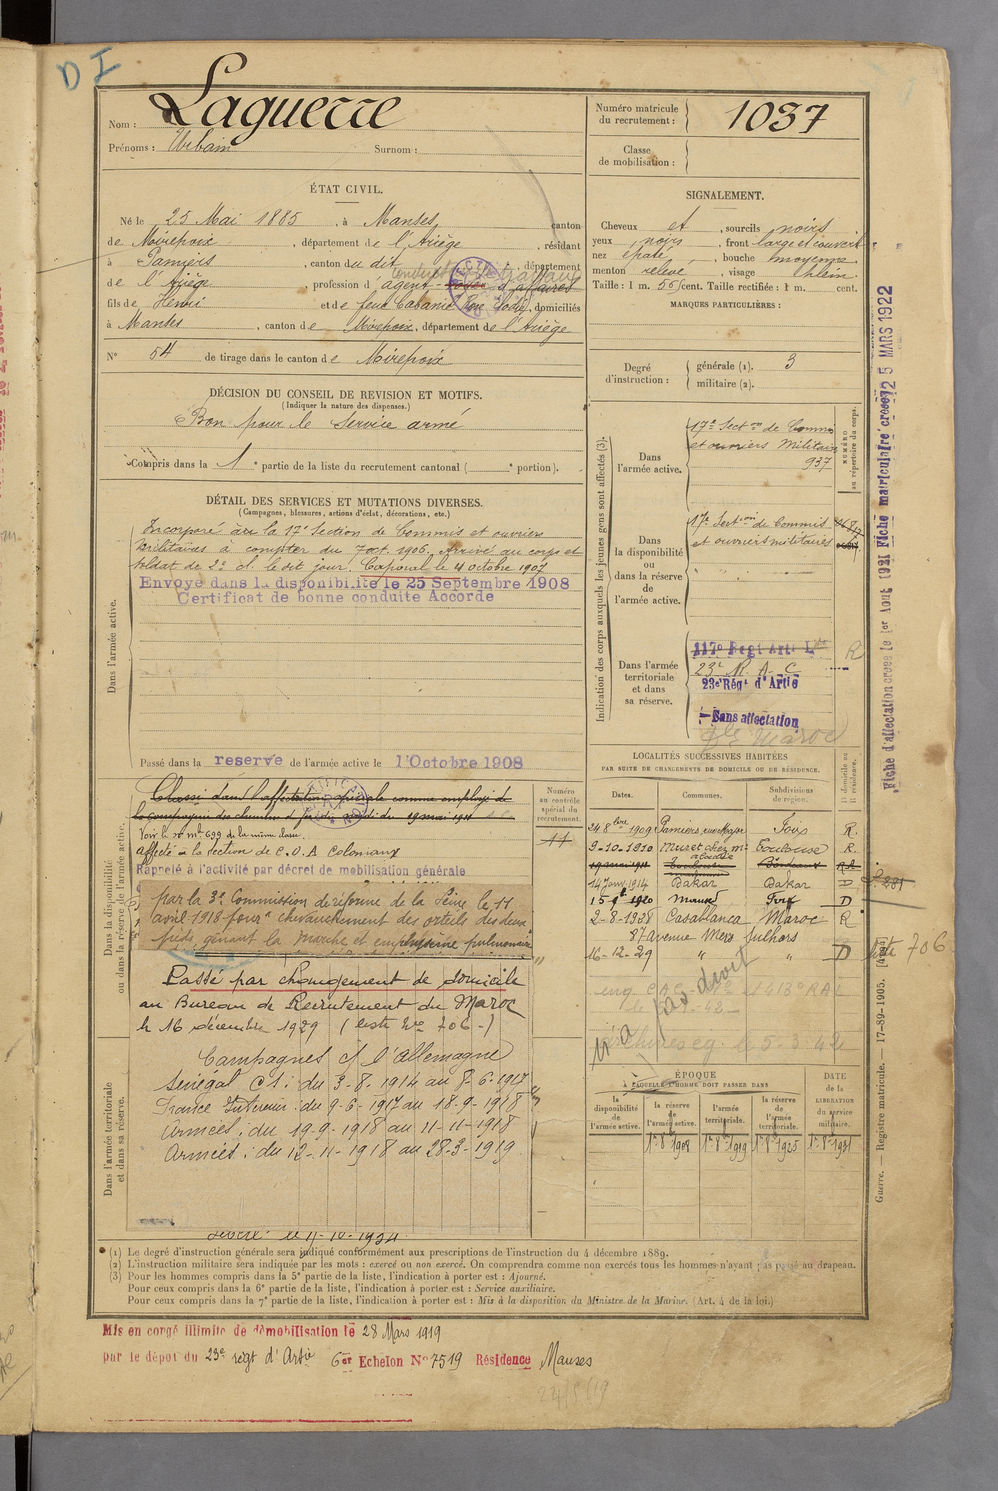 D I
Nom : Laguerre
Prénoms : Urbain Surnom :
Numéro matricule du recrutement : 1037
Classe de mobilisation :
ÉTAT CIVIL.
Né le 25 Mai 1885, à Manses, canton
de Mirepoix, département de l'Ariège, résidant
à Pamiers, canton du dit, département
de l'Ariège profession d'agent d'affaires
fils de Henri et de feue Cabanié, domiciliés
à Manses, canton de Mirepoix, département de l'Ariège
N° 54 de tirage dans le canton de Mirepoix
DÉCISION DU CONSEIL DE REVISION ET MOTIFS.
(Indiquer la nature des dispenses.)
Bon pour le service armé
Compris dans la 1e partie de la liste du recrutement cantonal ( e portion).
DÉTAIL DES SERVICES ET MUTATIONS DIVERSES.
(Campagnes, blessures, actions d'éclat, décorations, etc.)
Dans l'armée active.
Incorporé à la 17e Section de Commis et ouvriers
militaires à compter du 7 oct. 1906. Arrivé au corps et
soldat de 2e cl. le dit jour. Caporal le 4 octobre 1907
Envoyé dans la disponibilité le 25 Septembre 1908
Certificat de bonne conduite Accordé
Passé dans la reserve de l'armée active le 1 Octobre 1908
Dans la disponibilité ou dans la réserve de l'armée active.
Classé dans l'affectation spéciale comme employé de
la compagnie des chemins de fer du midi du 19 mai 1911
Voir le n° mle 699 de la même classe
affecté à la section de C.O.A Coloniaux
Rappelé à l'activité par décret de mobilisation générale
par la 3e Commission de réforme de la Seine le 11
avril 1918 pour " chevauchement des orteils des deux
pieds, gênant la marche et emphysème pulmonaire "
Passé par changement de domicile
au Bureau de Recrutement du Maroc
le 16 décembre 1929 (liste No 706-)
Dans l'armée territoriale et dans sa réserve.
Campagnes c/ l'allemagne
Sénégal CS : du 3-8-1914 au 8-6-1917
France Intérieur : du 9-6-1917 au 18-9-1918
Armées : du 19-9-1918 au 11-11-1918
Armées : du 12-11-1918 au 28-3-1919
Numéro au contrôle spécial du recrutement.
11
SIGNALEMENT.
Cheveux et, sourcils noirs
yeux noirs, front large et couvert
nez épaté, bouche moyenne
menton relevé, visage plein
Taille : 1 m. 55 cent. Taille rectifiée : 1 m. cent.
MARQUES PARTICULIÈRES :
Degré d'instruction : générale (1). 3
militaire (2).
Indication des corps auxquels les jeunes gens sont affectés (3).
NUMÉRO au répertoire du corps.
Dans l'armée active.
17e Sect on de Commis
et ouvriers Militaires
937
Dans la disponibilité ou dans la réserve de l'armée active.
17e Section de Commis
et ouvriers militaires
Dans l'armée territoriale et dans sa réserve.
117e Regt Artie Lde R
23e R.A.C
23e Régt d'Artie
Sans affectation
Maroc
LOCALITÉS SUCCESSIVES HABITÉES
PAR SUITE DE CHANGEMENTS DE DOMICILE OU DE RÉSIDENCE.
Dates. Communes. Subdivisions de région. D domicile ou R résidence.
24 8bre 1909 Pamiers Foix R.
9-10-1910 Muret Toulouse R.
19 mai 1911 Toulouse Bordeaux
14 janv. 1914 Dakar Dakar D
1920 Manses Foix D
2-8-1928 Casablanca Maroc R
87 avenue Mers Sultan
16-12-29 " " D
liste 706
n'a pas droit
le 5-3-42
ÉPOQUE
À LAQUELLE L'HOMME DOIT PASSER DANS
DATE de la LIBÉRATION du service militaire.
la disponibilité de l'armée active. la réserve de l'armée active. l'armée territoriale. la réserve de l'armée territoriale.
1er 8bre 1908 1er 8bre 1919 1er 8bre 1925 1er 8bre 1931
le 11-10-1934
(1) Le degré d'instruction générale sera indiqué conformément aux prescriptions de l'instruction du 4 décembre 1889.
(2) L'instruction militaire sera indiquée par les mots : exercé ou non exercé. On comprendra comme non exercés tous les hommes n'ayant pas passé au drapeau.
(3) Pour les hommes compris dans la 5e partie de la liste, l'indication à porter est : Ajourné.
Pour ceux compris dans la 6e partie de la liste, l'indication à porter est : Service auxiliaire.
Pour ceux compris dans la 7e partie de la liste, l'indication à porter est : Mis à la disposition du Ministre de la Marine. (Art. 4 de la loi.)
Mis en congé illimité de démobilisation le 28 Mars 1919
par le dépôt du 23e régt d'Artie 6er Echelon No 7519 Résidence Manses
Fiche d'affectation créée le 1er Aout 1921 Fiche matriculaire créée 25 MARS 1922
Guerre. — Registre matricule. — 17-89-1905.